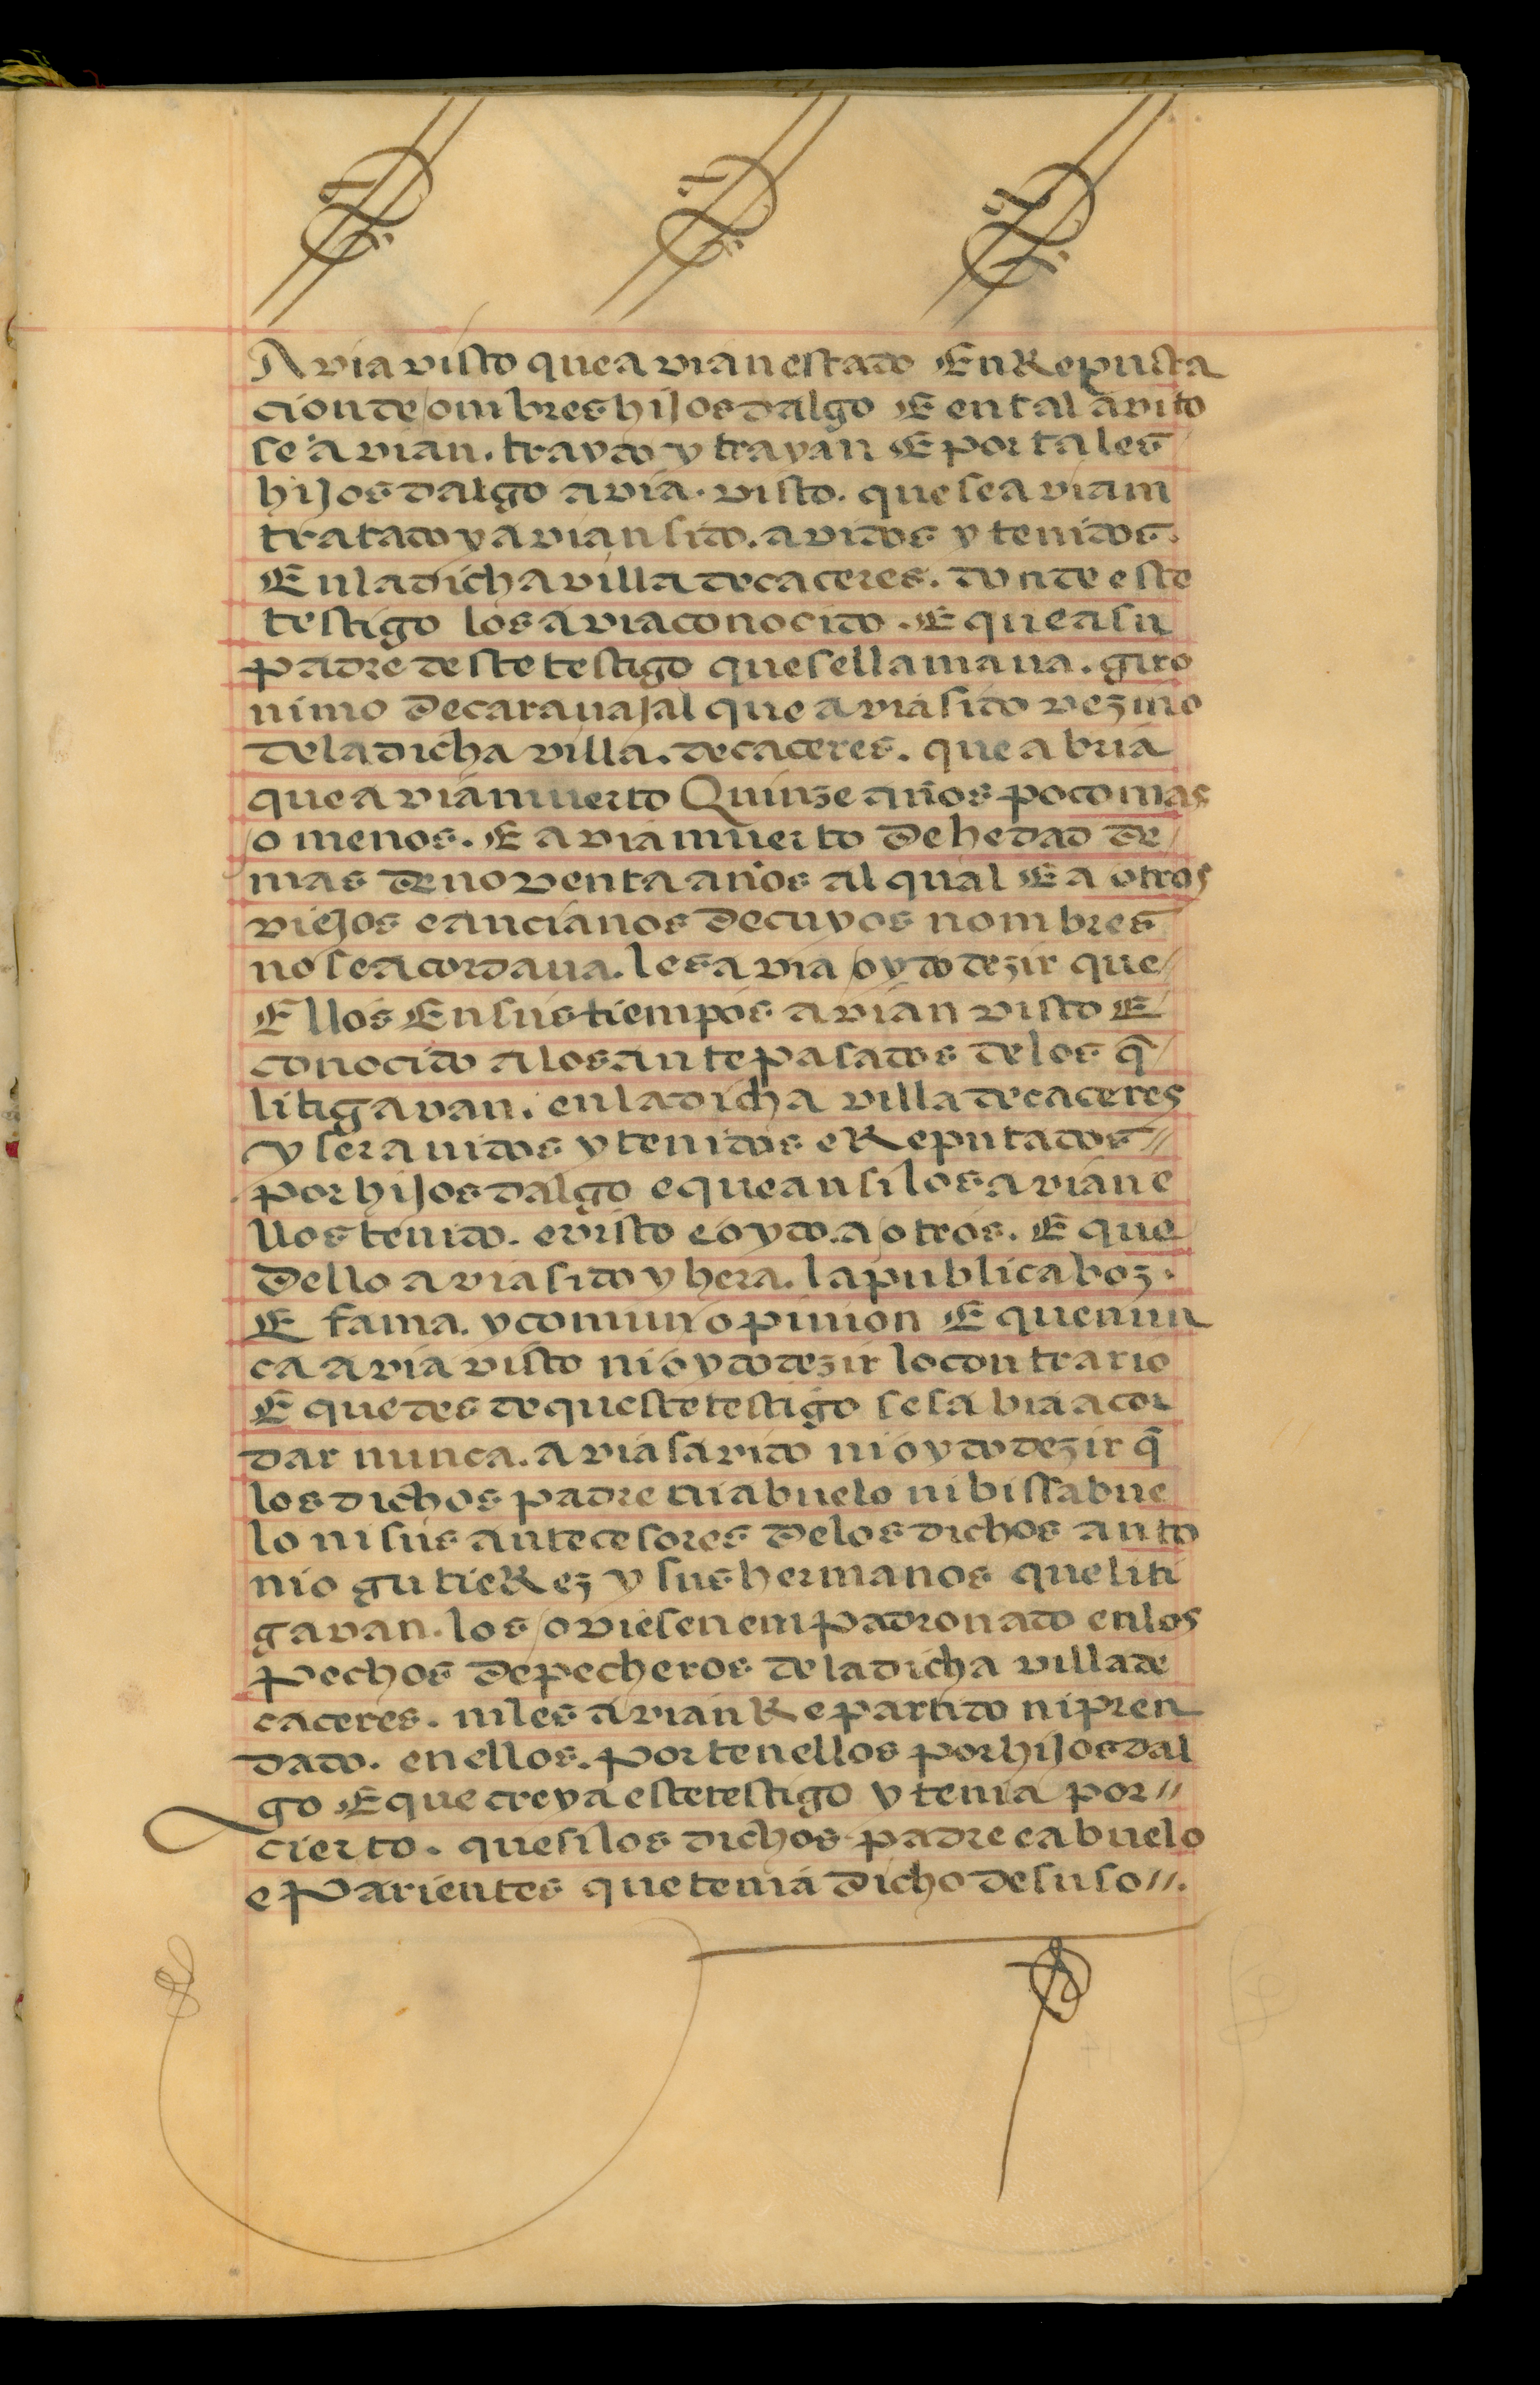 Avia visto que avian estado En Reputa
cion de ombres hijos dalgo E en tal avito
se avian. traydo y trayan E por tales
hijos dalgo avia. visto. que se aviam
tratado y avian sido. avidos y tenidos.
En la dicha villa de caceres. donde este
testigo los avia conocido. E que a su
padre deste testigo que se llamaua. giro
nimo de carauajal que avia sido vezino
de la dicha villa. de caceres. que abria
que avia muerto Quinze años poco mas
o menos. E avia muerto de hedad de
mas de noventa años al qual E a otros
viejos e ancianos de cuyos nombres
no se acordaua. les avia oydo dezir que
Ellos En sus tiempos avian visto E
conocido a los antepasados de los q̃
litigavan. en la dicha villa de caceres
y ser auidos y tenidos e Reputados //
por hijos dalgo e que ansi los avian e
llos tenido. e visto e oydo. a otros. E que
dello avia sido y hera. la publica boz.
E fama. y comun opinion E que nun
ca avia visto ni oydo dezir lo contrario
E que des de queste testigo se sabia acor
dar nunca. avia savido ni oydo dezir q̃
los dichos padre ni abuelo ni bissabue
lo ni sus antecesores de los dichos anto
nio gutieRez y sus hermanos que liti
gavan. los oviesen empadronado en los
pechos de pecheros de la dicha villa de
caceres. ni les avian Repartido ni pren
dado. en ellos. por tenellos por hijos dal
go E que creya este testigo y tenia por //
cierto. que si los dichos padre e abuelo
e Parientes que tenia dicho de suso //.